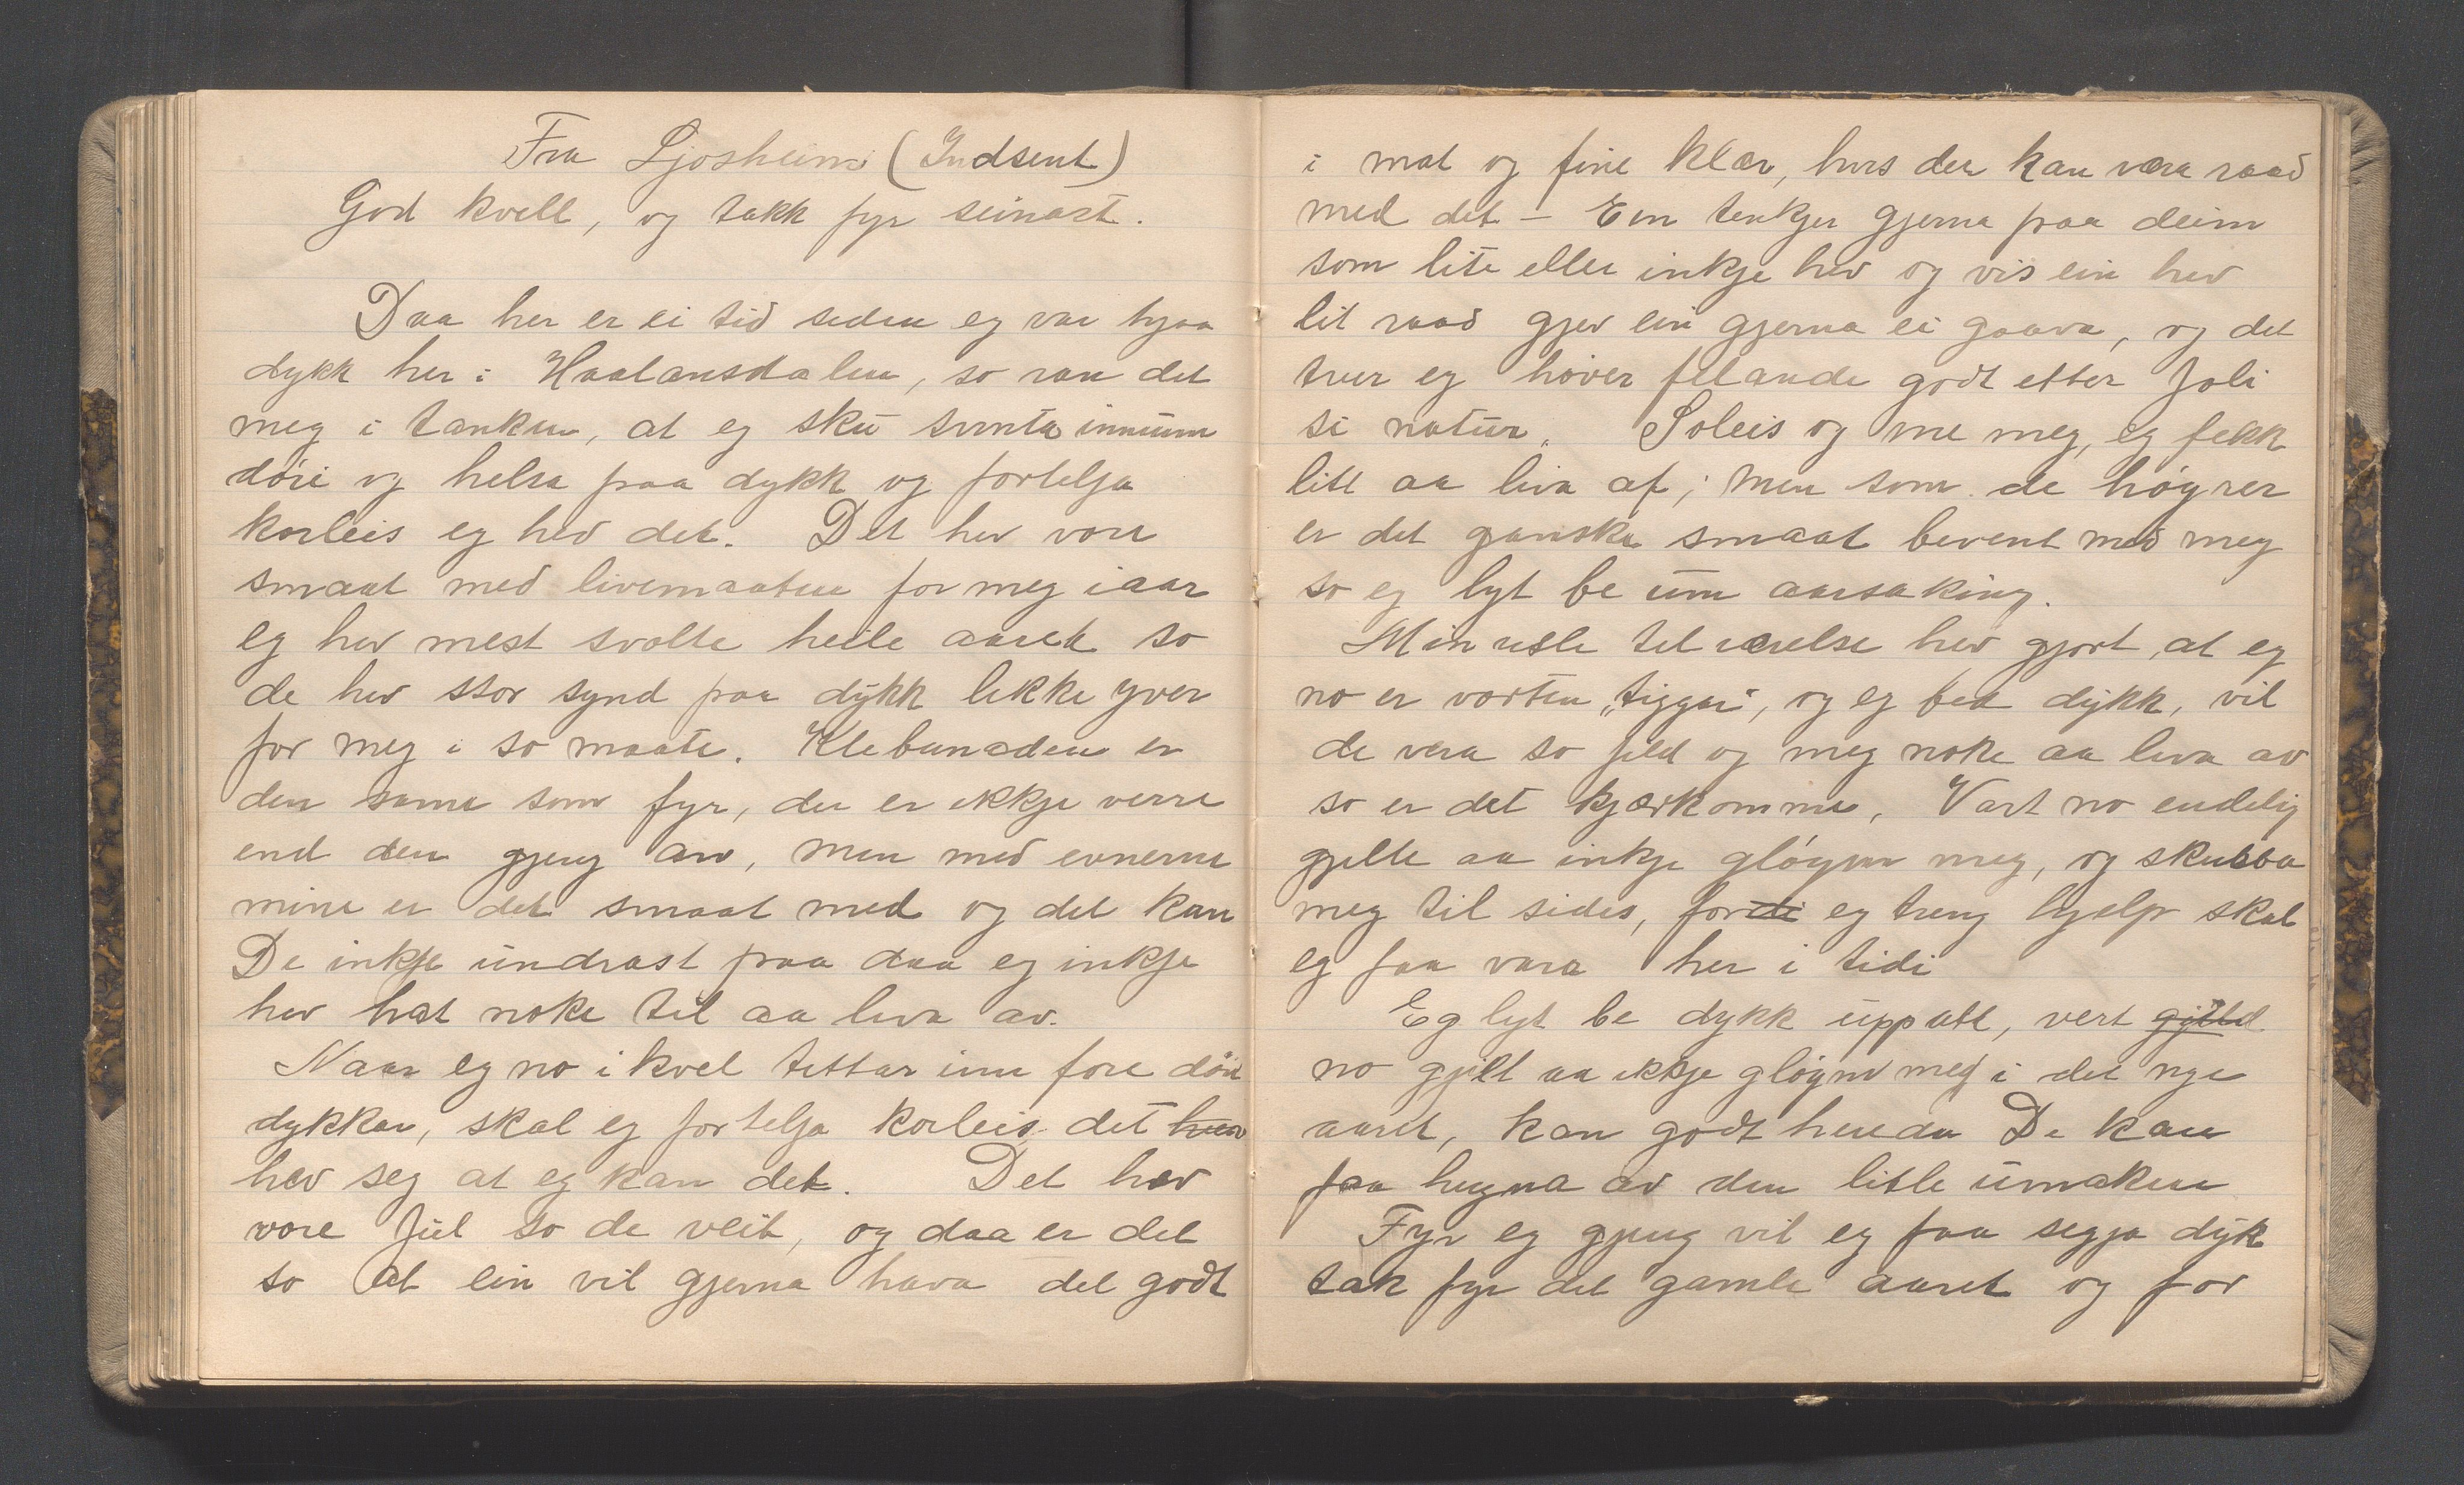 Fra Ljosheim (Indsent)
God kvell, og takk fyr seinast.
Daa her er ei tid sedan eg var hjaa
dykk her i Haalansdalen, so ran det
meg i tanken, at eg sku svinta innum
döri og helsa paa dykk og fortelja
korleis eg hev det. Det hev vore
smaat med livemaaten for meg i aar
eg hev mest svolte heile aaret so
de hev stor synd paa dykk likke yver
for meg i so maate. Klebunaden er
den same som fyr, den er ikkje verre
end den gjeng an, men med evnerne
mine er det smaat med og det kan
De inkje undrast paa daa eg inkje
hev hat noke til aa leva av.
Naar eg no i kvel tettar inn fore döri
dykkar, skal eg fortelja korleis det
hev seg at eg kan det. Det hev
vore Jul so de veit, og daa er det
so at ein vil gjerna hava det godt
i mat og fine klær, hvis der kan væra raad
med det – Ein tenkjer gjerna paa deim
som lite eller inkje hev og vis ein hev
lit raad gjev ein gjerna ei gaava, og det
trur eg höver felande godt etter Joli
si natur. Soleis og me meg, eg fekk
litt aa liva af; men som de högrer
er det ganske smaat bevent med meg
so eg lyt be um aarsaking.
Min usle tilværelse hev gjort, at eg
no er vorten "tiggar", og eg bed dykk, vil
de vera so jild og meg noke aa leva av
so er det kjærkomme, Vart no endelig
gjilde aa inkje glöyma meg, og skubba
meg til sides, fordi eg treng hjelp skal
eg faa vara her i tidi
Eg lyt be dykk uppatt, vert gjild
no gjilt aa ikkje glöyma meg i det nye
aaret, kan godt henda De kan
faa hugna av den litle umaken
Fyr eg gjeng vil eg faa segja dyk
tak fyr det gamle aaret og for